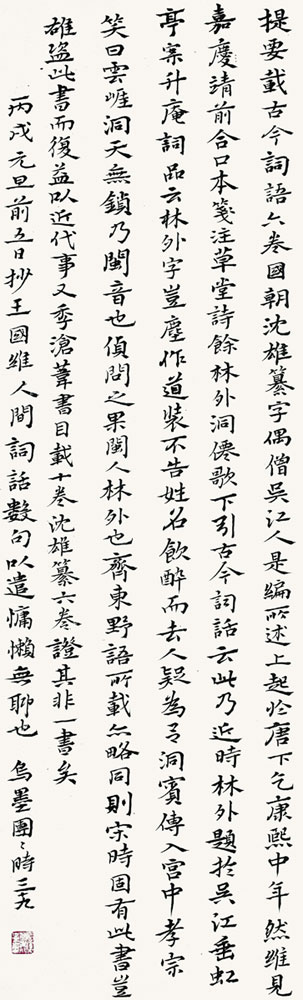 提要載古今詞語六卷國朝沈雄纂字偶僧吳江人是編所述上起於唐下乞康熙中年然維見
嘉慶靖前合口本箋注草堂詩餘林外洞僊歌下引古今詞話云此乃近時林外題於吳江垂虹
亭案升庵詞品云林外字豈塵作道裝不告姓名飲醉而去人疑為呂洞賓傳入宮中孝宗
笑曰雲崕洞天無鎖乃閩音也偵問之果閩人林外也齊東野語所載亦略同則宋時固有此書豈
雄盜此書而復益以近代事又季滄葦書目載十卷沈雄纂六卷證其非一書矣
丙戌元旦前五日抄王國維人間詞話數句以遣慵懶無聊也 烏墨團〻時三九